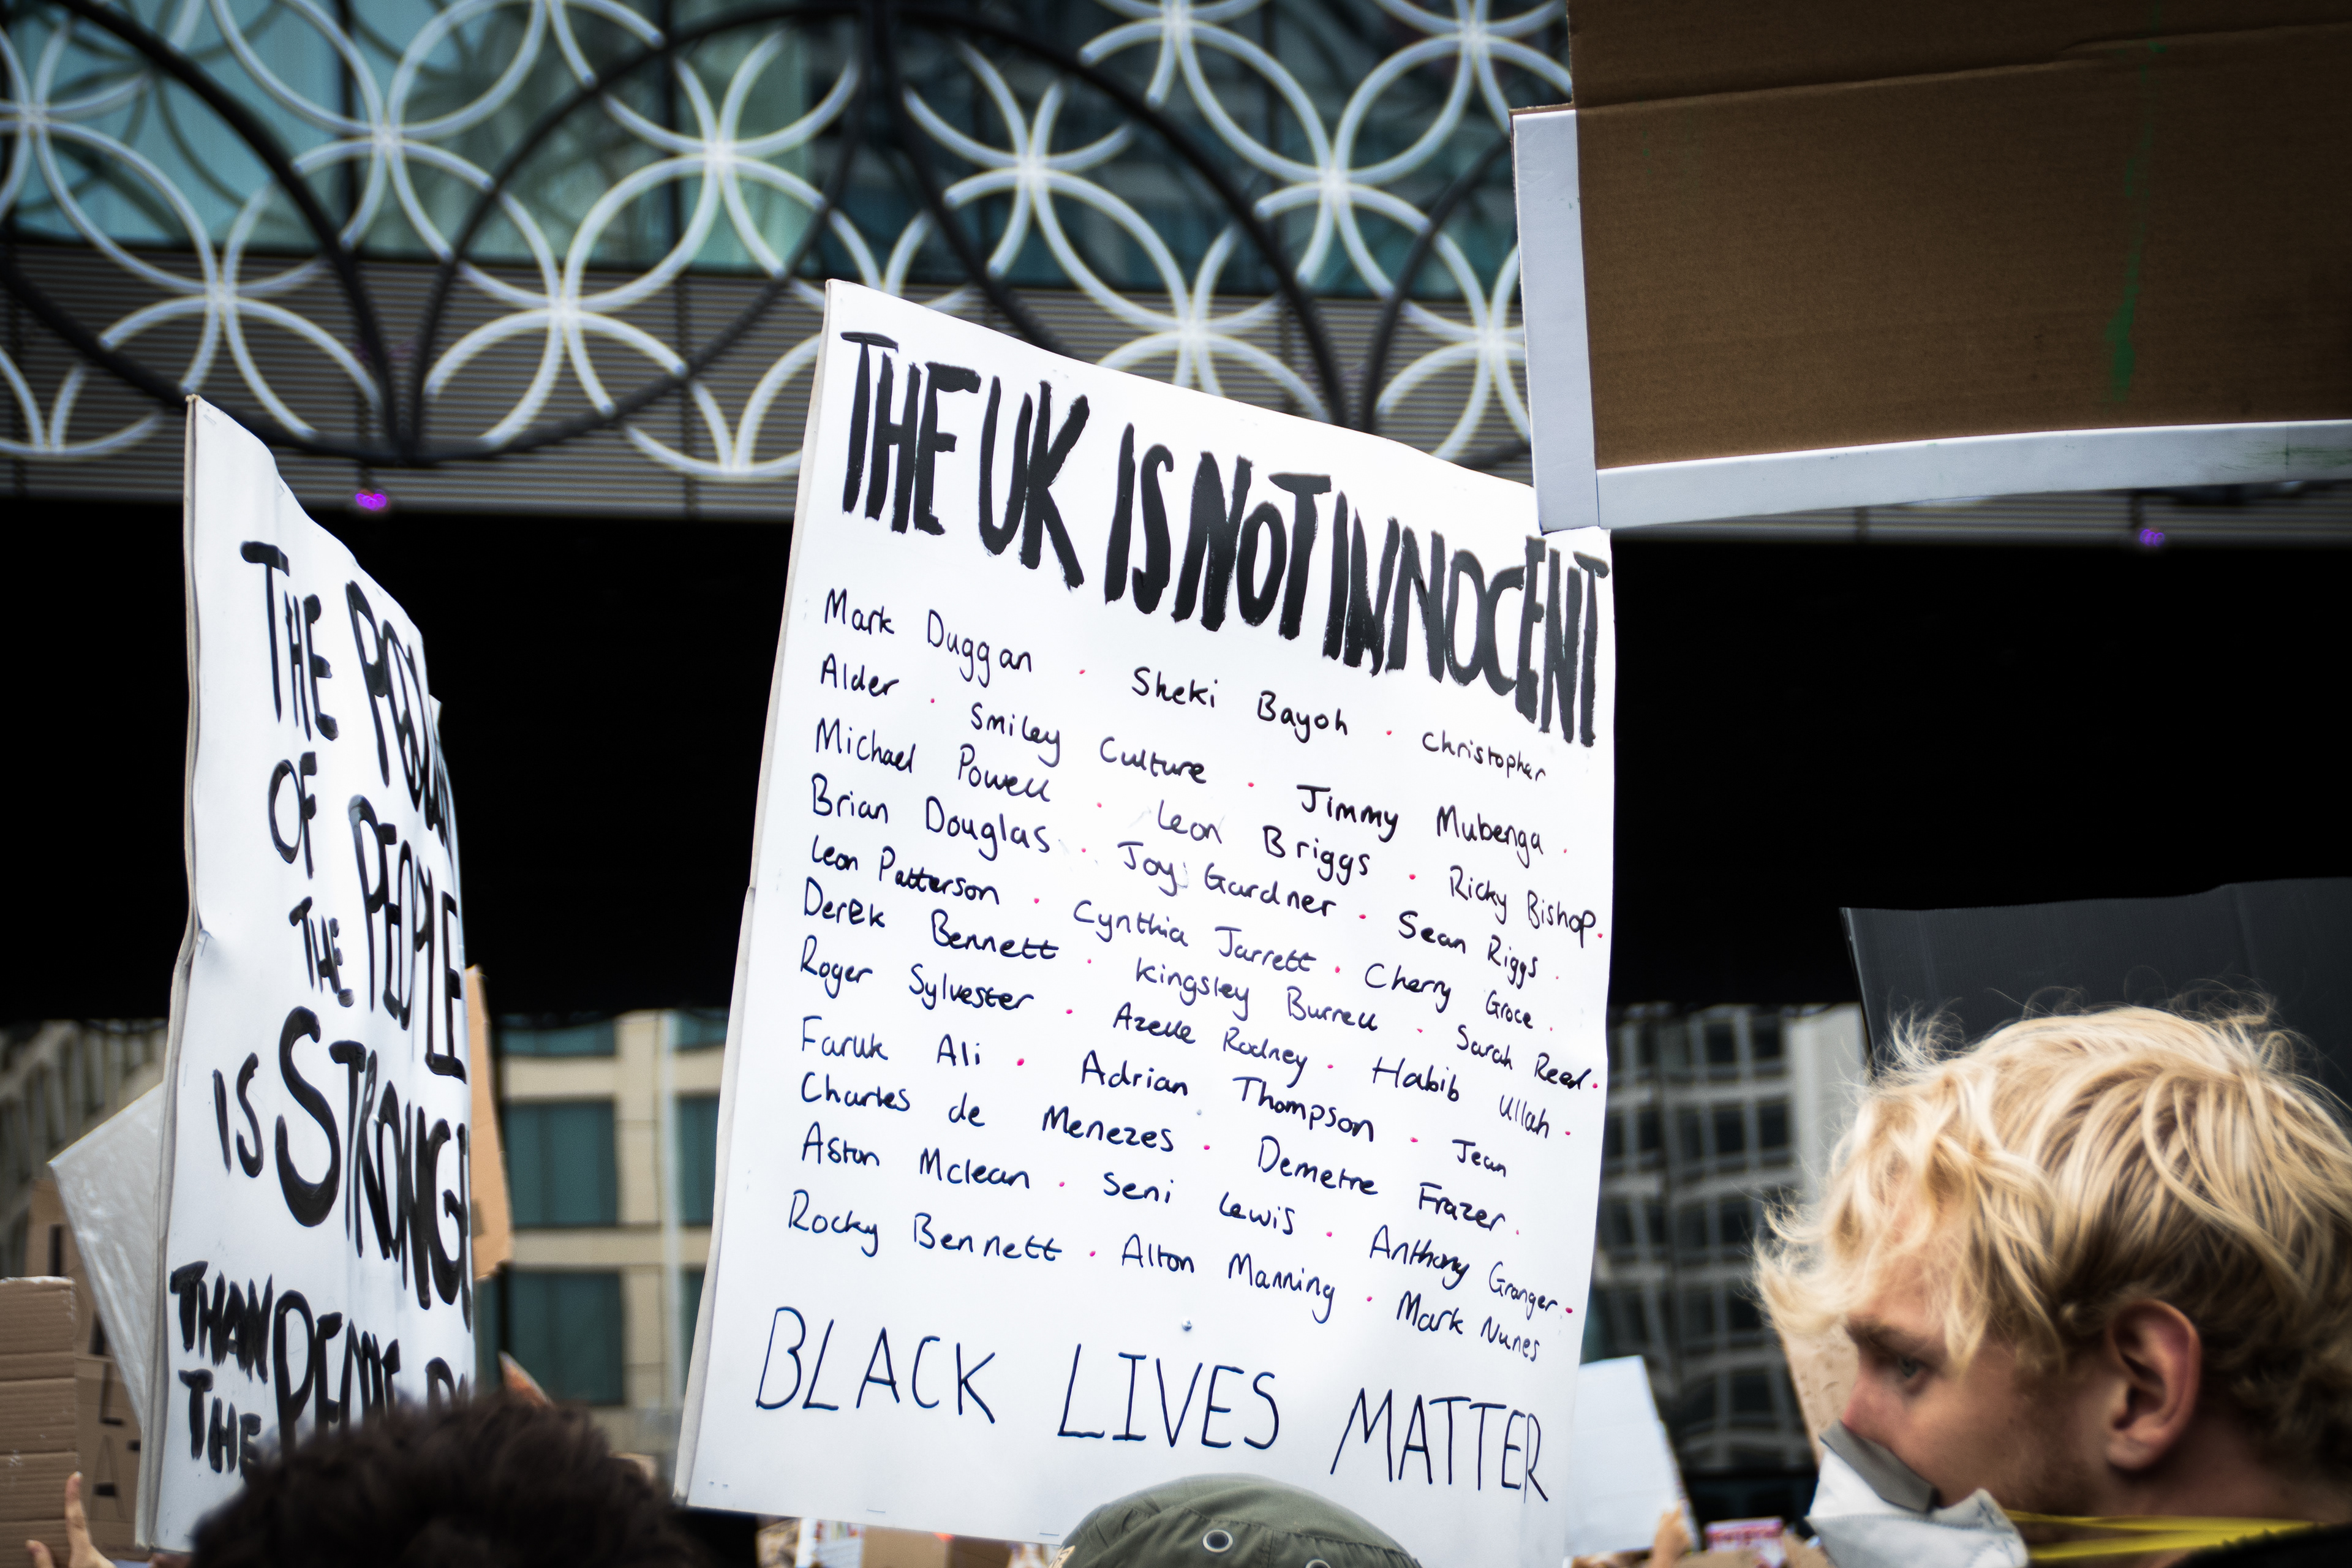 THE
OF
THE PEOPLE
IS STRONG
THAN
THE
THE UK IS NOT INNOCENT
Mark Duggan · Sheki Bayoh · Christopher
Alder · Smiley Culture · Jimmy Mubenga ·
Michael Powell · Leon Briggs · Ricky Bishop ·
Brian Douglas · Joy Gardner · Sean Riggs ·
Leon Patterson · Cynthia Jarrett · Cherry Groce ·
Derek Bennett · Kingsley Burrell · Sarah Reed ·
Roger Sylvester · Azelle Rodney · Habib Ullah ·
Faruk Ali · Adrian Thompson · Jean
Charles de Menezes · Demetre Frazer ·
Aston Mclean · Seni Lewis · Anthony Granger ·
Rocky Bennett · Alton Manning · Mark Nunes
BLACK LIVES MATTER